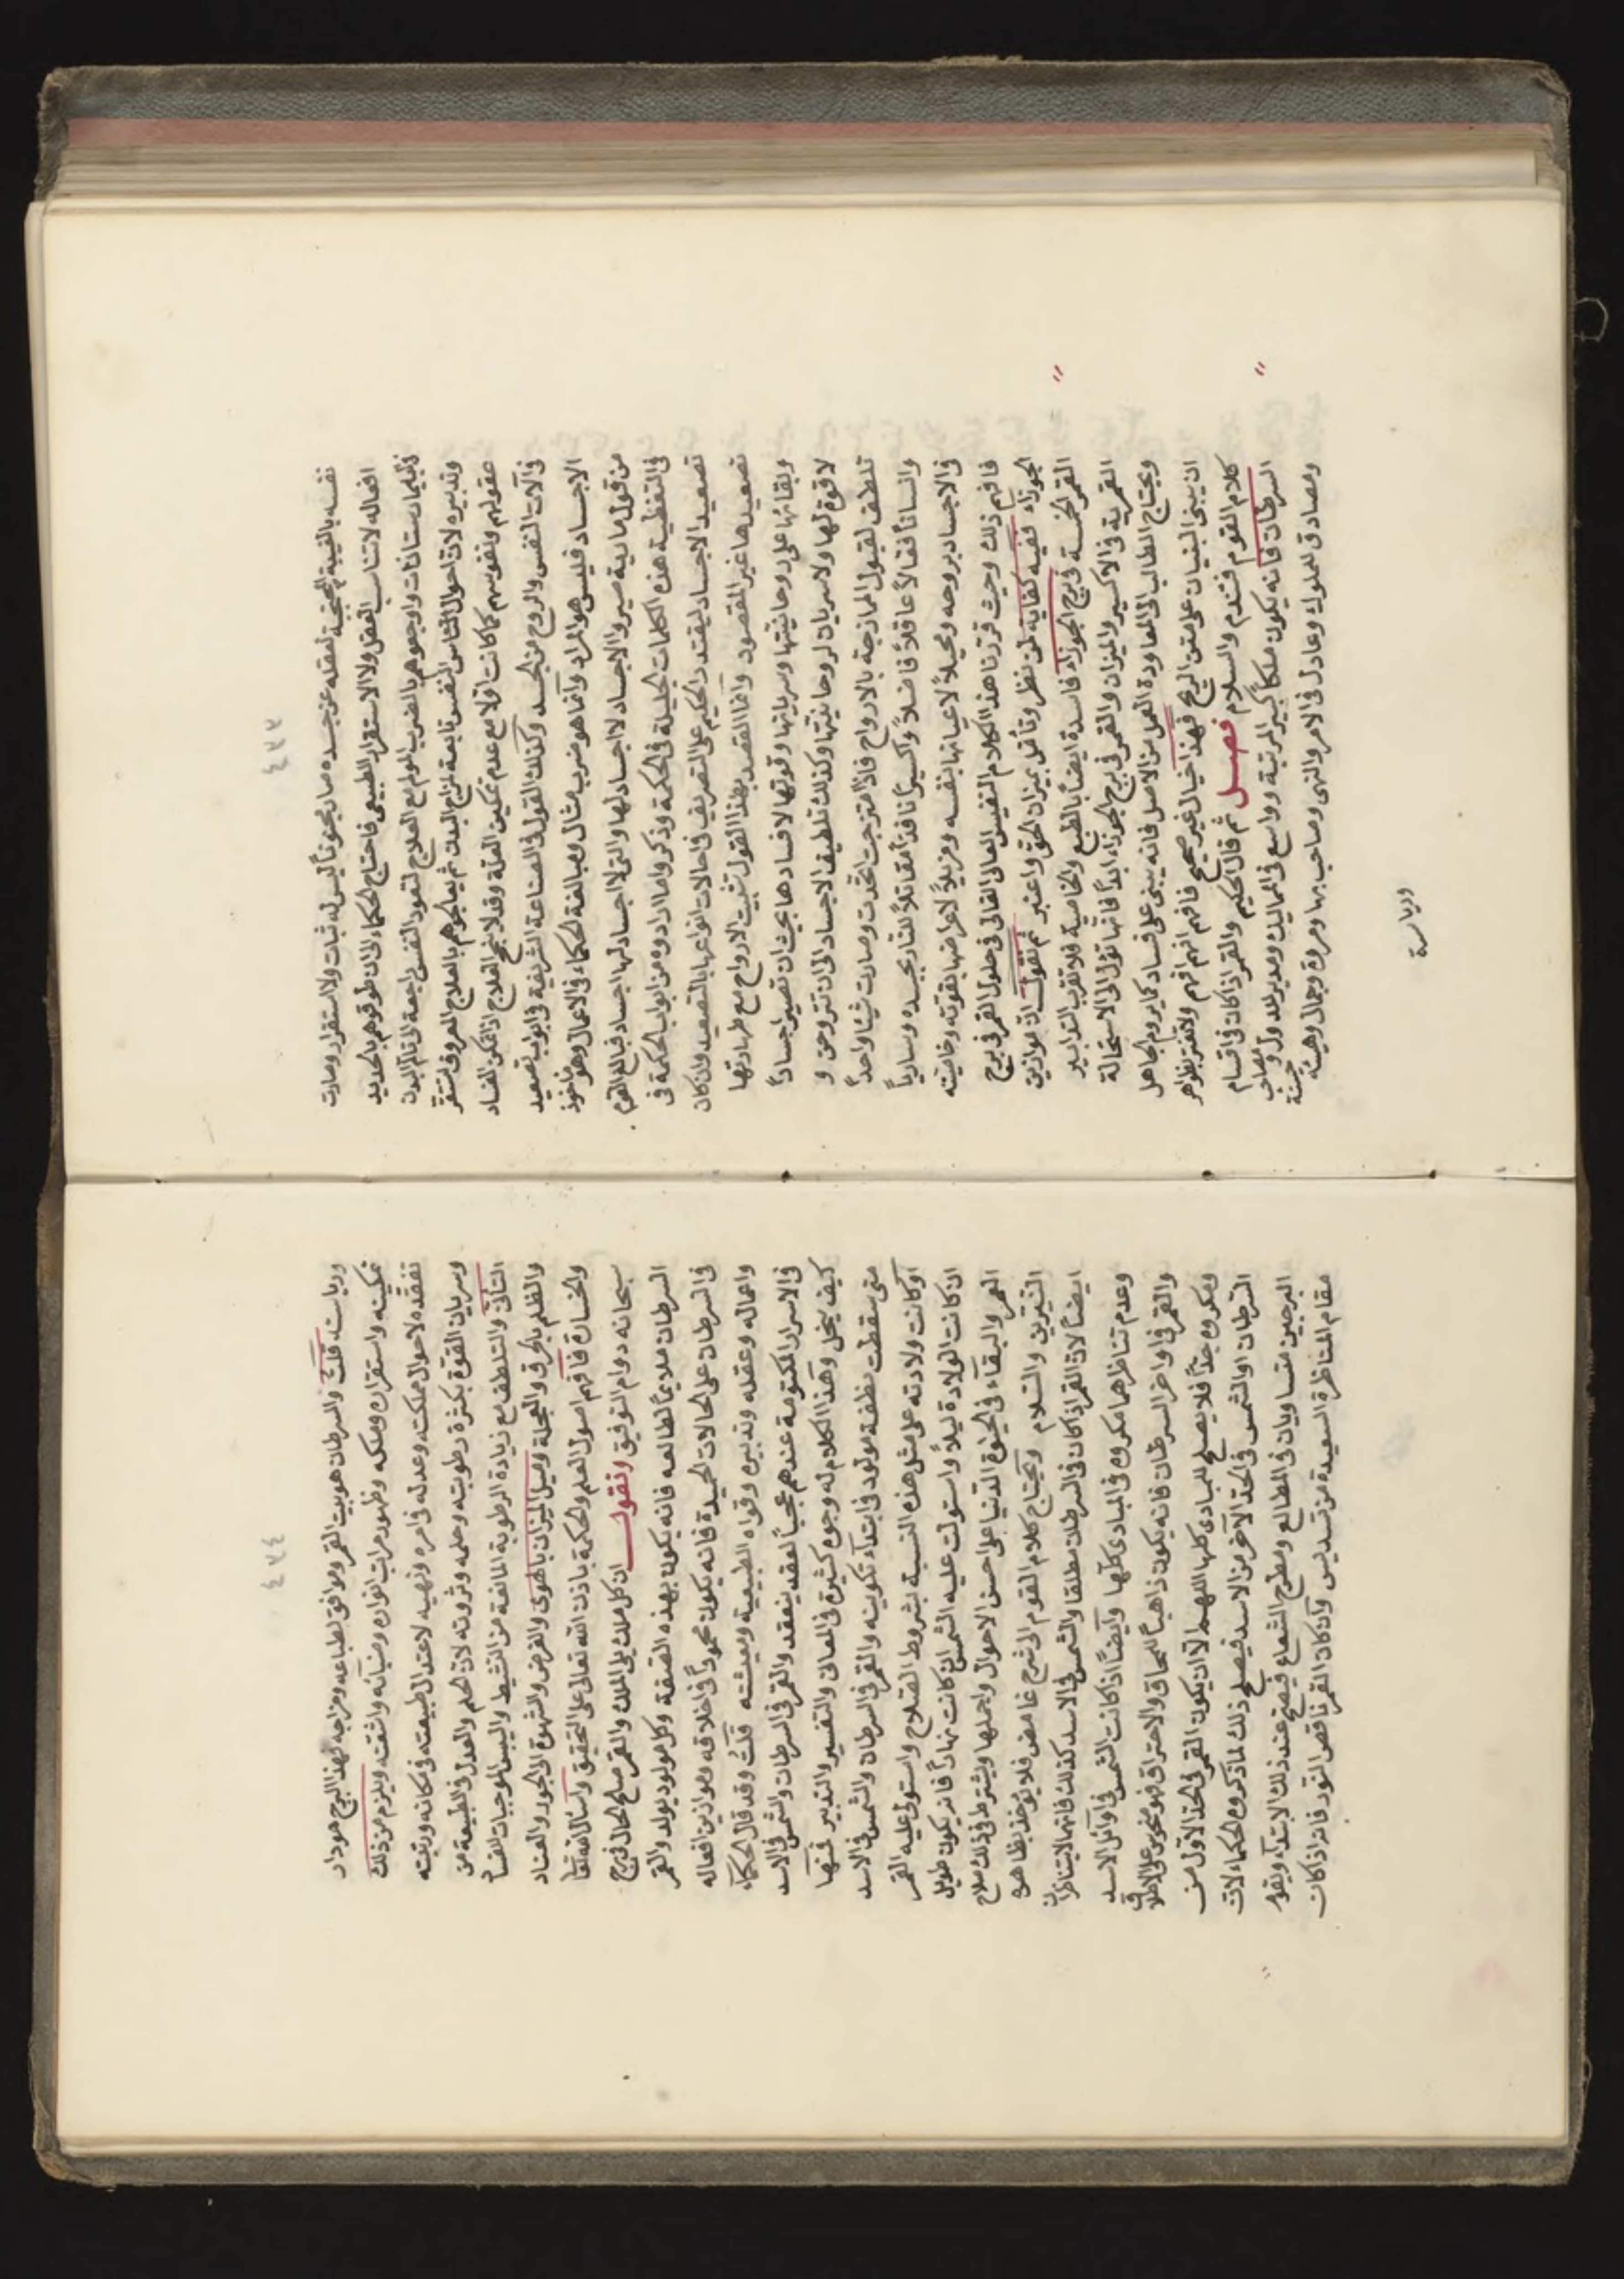 ٤٧٣
نفسه بالغيبة المحتجبة لعقله عن جسده صار مجنوناً ليس له ثبات ولا استقرار وصارت
افعاله لا تناسب العقل ولا الاستقرار الطبيعى فاحتاج الحكماء الى ان طوقوهم بالحديد
فى البيمارستانات واوجعوهم بالضرب المولم مع العلاج لتعود النفس راجعة الى تألم البدن
وتدبيره لان احوال الناس النفسية تابعة لمزاج البدن ثم يعالجوهم بالعلاج المعروف لتستقر
عقولهم ونفوسهم كما كانت اولا مع عدم تمكين العلة وقد لا ينجح العلاج اذا تمكن الفساد
فى آلات النفس والروح من الجسد وكذلك القول فى الصناعة الشريفة فى ابواب تصعيد
الاجساد فليس هو المراد وانما هو ضرب مثال ومبالغة الحكماء فى الاعمال وهو مأخوذ
من قول مارية صيروا الاجساد لا اجساد لها والتى لا اجساد لها اجساد فبالغ القوم
فى التغطية هذه الكلمات الجليلة فى الحكمة وذكروا ما ارادوه من ابواب الحكمة فى
تصعيد الاجساد ليقتدر الحكيم على التصريف فى احالات انواعها بالتصعيد وان كان
تصعيدها غير المقصود وانما القصد بهذا القول تثبيت الارواح مع طهارتها
وبقائها على روحانيتها وسريانها وقوتها لا فسادها بحيث ان تصير اجساداً
لا قوة لها ولا سريان لروحانيتها وكذلك تلطيف الاجساد الى ان تتروحن و
تلطف لقبول الممازجة بالارواح فاذا امتزجت اتحدت وصارت شيئا واحداً
وانساناً فعالاً عاقلاً فاضلاً واكسيراً نافذاً مقاتلاً للنار بجسده وسارياً
فى الاجساد بروحه ومحيلاً لاعيانها بنفسه ومزيلاً لامراضها بقوته وخاصيته
فافهم ذلك وحيث قررنا هذا الكلام النفيس العالى الغالى فى حلول القمر فى برج
الجوزاء ففيه كفاية لمن نظر وتأمل بميزان الحق واعتبر ثم نقول ان موازين
القمر الخمسة فى برج الجوزاء فاسدة ايضاً بالطبع والخاصية فلا تقرب التدابير
القمرية فى الاكسير والميزان والقمر فى برج الجوزاء ابداً فانها تؤل الى الاستحالة
ويحتاج الطالب الى المعاودة العمل من الاصل فانه يبنى على فساد كما يروم الجاهل
ان يبنى البنيان على متن الريح فهذا خيال غير صحيح فافهم افهم افهم ولا تغتر بظواهر
كلام القوم فتندم والسلام فصل ثم قال الحكيم والقمر اذا كان فى اقسام
السرطان فانه يكون ملكاً كبير المرتبة وواسع فى المماليك ومدبر عدول وصاحب حسنة
ومصادق للملوك وعادل فى الامر والنهى وصاحب بها ومروة وجمال وهيبة
ورياسة
٤٧٤
ورياسة قلت والسرطان هو بيت القمر وموافق لطباعه ومزاجه لهذا البرج هو دار
تمكينه واستقراره وملكه وظهور مراتب انواره وضيآئه واشعته ويلزم من ذلك
تفقده لاحوال مملكته وعدله فى امره ونهيه لاعتدال طبيعته فى مكانه ورتبته
وسريان القوة بكثرة رطوبته وحلمه وثروته لان الحلم والعدل فى الطبيعة من
التأنى والتلطف مع زيادة الرطوبة المانعة من التشيط واليبس الموجبات للفساد
والظلم بالحرق والعجلة وميل الميزان بالهوى والغرض والشهوة والجور والعناد
والخسارة فافهم اصول العلم والحكمة باذن الله تعالى على التحقيق واسأل الله
سبحانه دوام التوفيق ونقول ان كل ملك يلى الملك والقمر صالح الحال فى برج
السرطان ملايماً لطالعه فانه يكون بهذه الصفة وكل مولود يولد والقمر
فى السرطان على الحالات الحميدة فانه يكون محموداً فى اخلاقه وموازين افعاله
واعماله وعقله وتدبيره وقواه الطبيعية ومعيشته قلت وقد قال الحكماء
فى الاسرار المكتومة عندهم عجباً لعقد ينعقد والقمر فى السرطان والشمس فى الاسد
كيف ينحل وهذا الكلام له وجوه كثيرة فى المعانى والتفسير والتدبير فمنها
متى سقطت نطفة مولود فى ابتدآء تكوينه والقمر فى السرطان والشمس فى الاسد
اوكانت ولادته على مثل هذه النسبة بشروط الصلاح واستولى عليه القمر
ان كانت الولادة ليلاً واستولت عليه الشمس ان كانت نهاراً فانه يكون طويل
العمر والبقاء فى الحيوة الدنيا على احسن الاحوال واجملها ويشترط فى ذلك صلاح
النيرين والسلام ويحتاج كلام القوم الى شرح غامض فلا يؤخذ بظاهره
ايضاً لان القمر اذا كان فى السرطان مطلقا والشمس فى الاسد كذلك فانهما لا يتناظران
وعدم تناظرهما مكروه فى المبادى كلها وايضاً اذا كانت الشمس فى اوآئل الاسد
والقمر فى اواخر السرطان فانه يكون ذاهباً للمحاق والاحتراق فهو منحوس على الاطلاق
ومكروه جداً فلا يصلح للمبادى كلها اللهم الا ان يكون القمر فى الحد الاول من
السرطان والشمس فى الحد الآخر من الاسد فيصلح ذلك لما ذكروه الحكماء لان
البرجين متساويان فى المطالع ومطرح الشعاع فيصح عند ذلك الابتدآء ويقوم
مقام المناظرة السعيدة من تسديس وان كان القمر ناقص النور فانه اذا كان